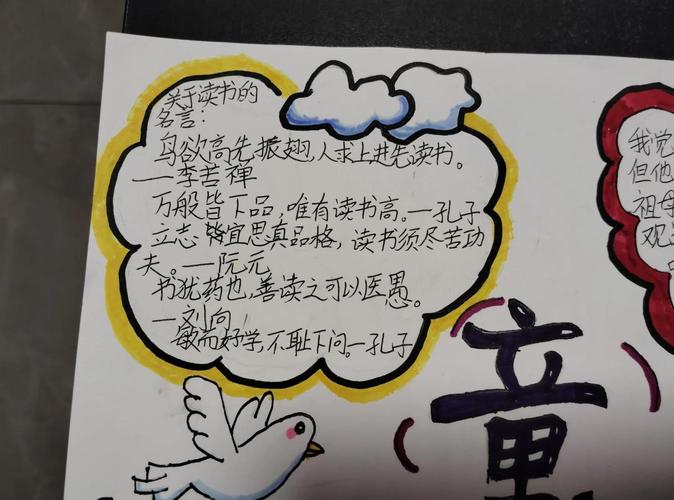 关于读书的
名言：
鸟欲高先振翅,人求上进先读书。
——李苦禅
万般皆下品,唯有读书高。—孔子
立志 皆宜思真品格, 读书须尽苦功
夫。——阮元
书犹药也,善读之可以医愚。
—刘向
敏而好学,不耻下问。—孔子
童
我觉
但他
祖母
观